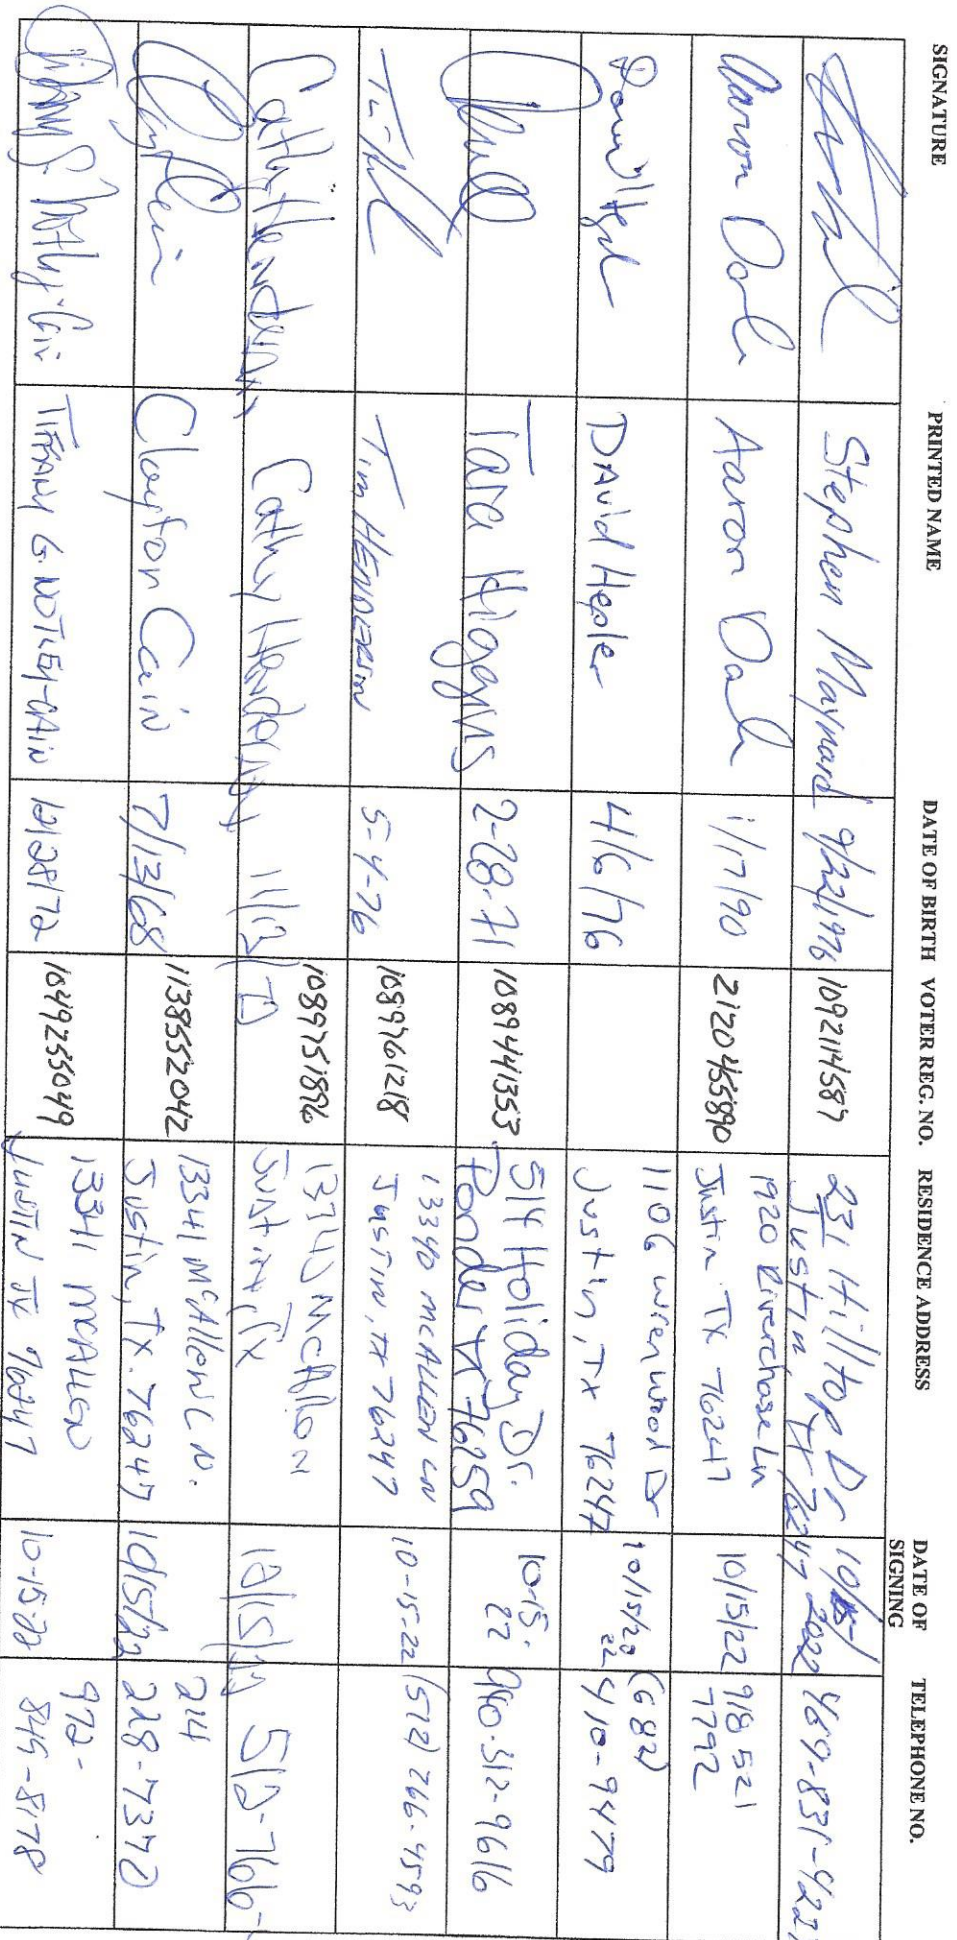 SIGNATURE
PRINTED NAME
DATE OF BIRTH
VOTER REG. NO.
RESIDENCE ADDRESS
DATE OF
SIGNING
TELEPHONE NO.
Stephen Maynard
9/22/1976
1092114587
231 Hilltop Dr
Justin, TX 76247
2022
Aaron
Aaron
1/17/90
2120455890
1920 Riverchase Ln
Justin TX 76247
10/15/22
918 521
7792
David Hepler
4/6/76
1106 Wrenwood Dr
Justin, TX 76247
10/15/22
22
(682)
410-9479
Tara Higgins
2-28-71
1089441353
514 Holiday Dr.
Ponder TX 76259
10-15-
22
940-312-9616
Tim HENDERSON
5-4-76
1089761218
13340 MCALLEN LN
JUSTIN, TX 76247
10-15-22
(512) 766-4593
Cathy Henderson
Cathy Henderson
1089751896
13340 McAllen
Justin, TX
512-766-
Clayton Cain
7/13/68
1138552042
13341 McAllen LN.
Justin, TX. 76247
10/15/22
214
228-7370
TIFFANY G NOTLEY-CAIN
12/28/72
1049255049
13341 MCALLEN
JUSTIN TX 76247
10-15-22
972-
849-8178